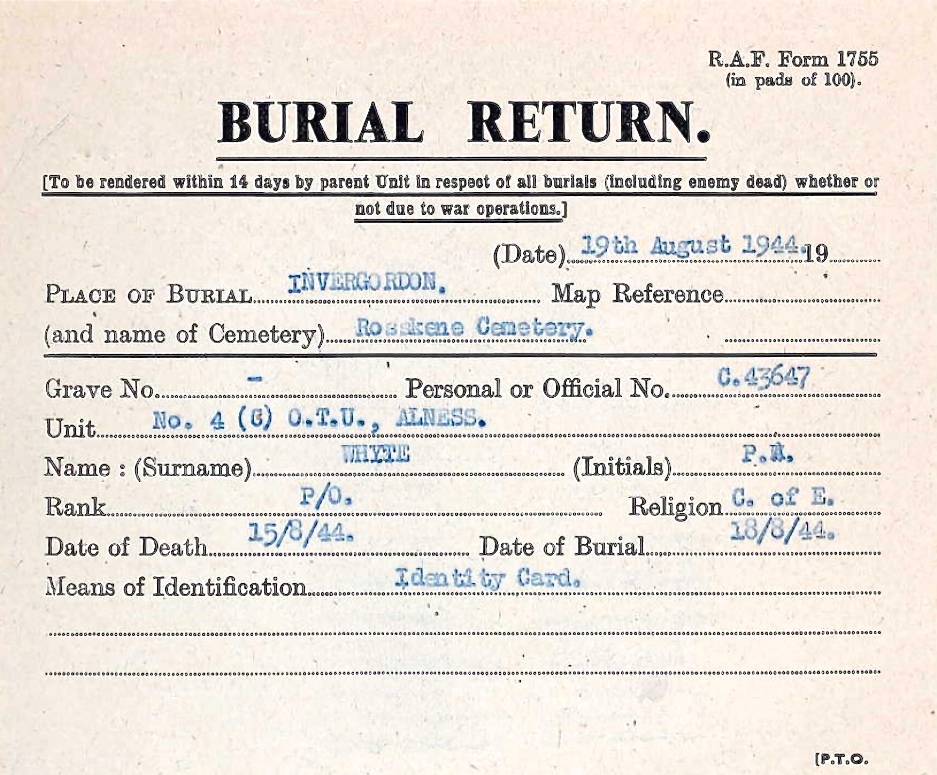 R.A.F. Form 1755
(in pads of 100).
BURIAL RETURN.
[To be rendered within 14 days by parent Unit in respect of all burials (including enemy dead) whether or
not due to war operations.]
(Date) 19th August 1944. 19
PLACE OF BURIAL INVERGORDON. Map Reference
(and name of Cemetery) Rosskene Cemetery.
Grave No. - Personal or Official No. C.43647
Unit No. 4 (C) O.T.U., ALNESS.
Name : (Surname) WHYTE (Initials) P.
Rank P/O. Religion C. of E.
Date of Death 15/8/44. Date of Burial 18/8/44.
Means of Identification Identity Card.
[P.T.O.